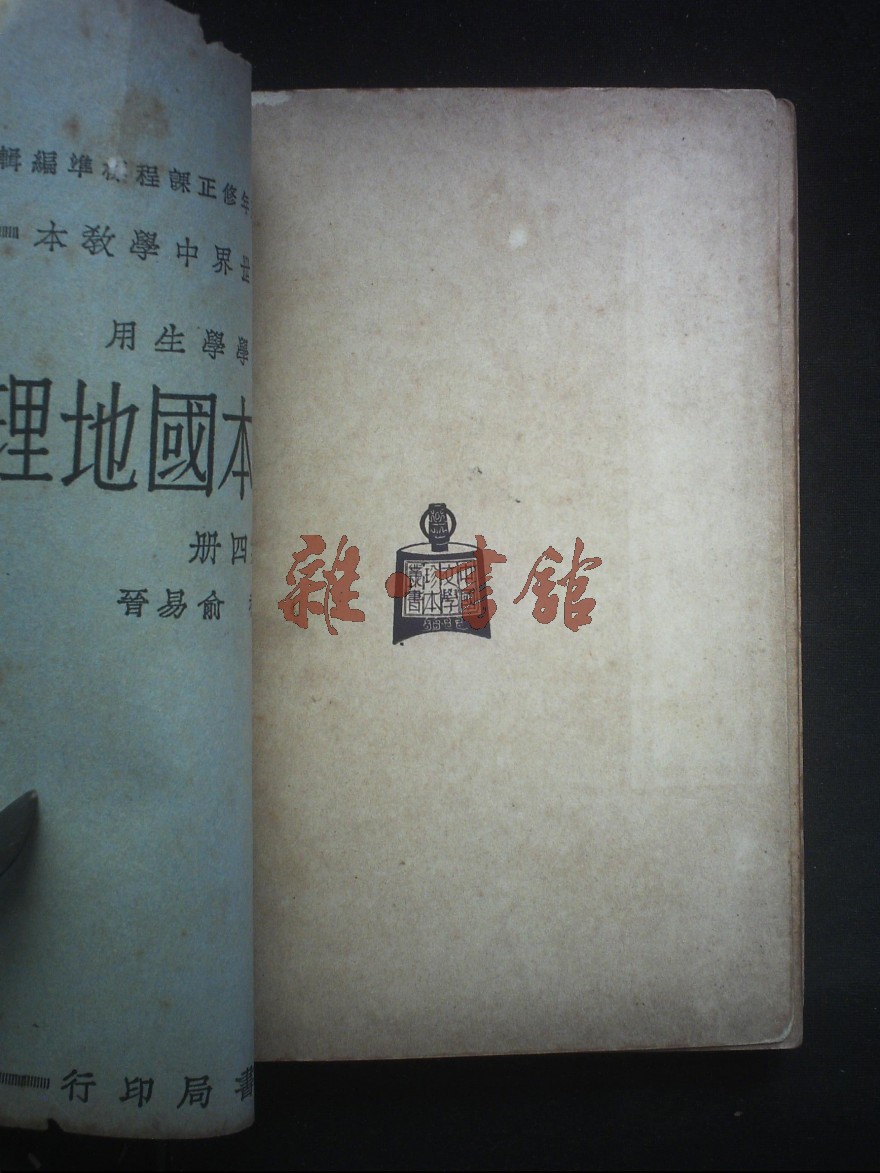 年修正課程標準編輯
世界中學教本
學學生用
本國地理
四册
俞易晉
書局印行
中國
文學
珍本
叢書
雜·書館